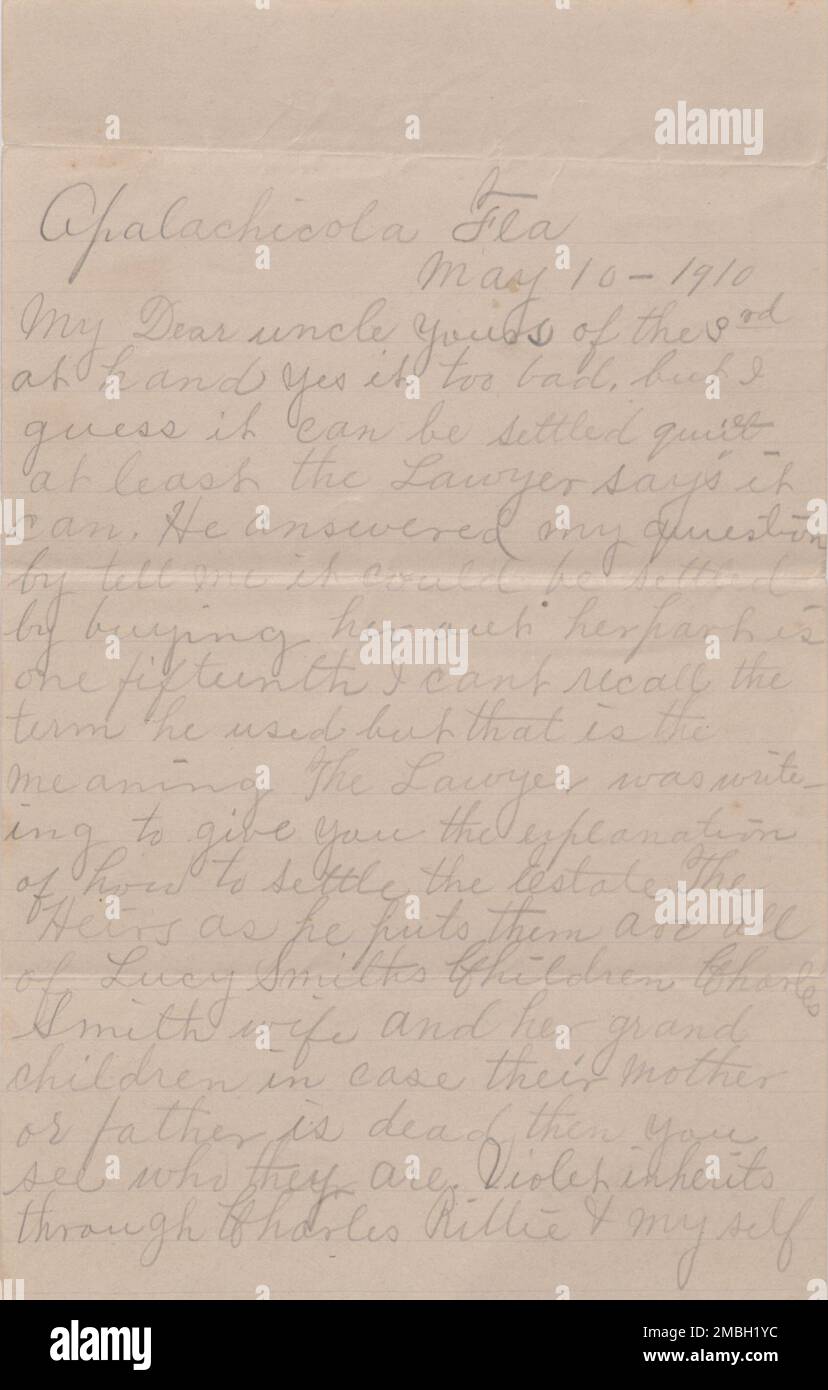 Apalachicola Fla
May 10 - 1910
My Dear uncle yours of the 3rd
at hand yes it too bad, but I
guess it can be settled quiet
at least the Lawyer says it
can. He answered my question
by tell me it could be settled
by buying her out her part is
one fifteenth I cant recall the
term he used but that is the
meaning The Lawyer was write-
ing to give you the explanation
of how to settle the Estate The
Heirs as he puts them are all
of Lucy Smiths Children Charles
Smith wife and her grand
children in case their mother
or father is dead, then you
see who they are. Violet inherits
through Charles Rillie & my self
alamy
Image ID: 2MBH1YC
www.alamy.com